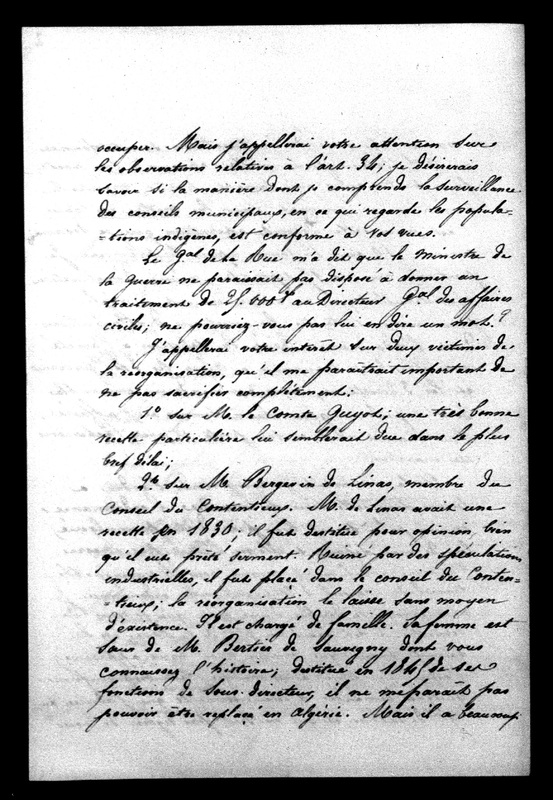 occuper. Mais j'appellerai votre attention sur
les observations relatives à l'art. 34; je désirerais
savoir si la manière dont je comprends la surveillance
des conseils municipaux, en ce qui regarde les popula-
-tions indigènes, est conforme à vos vues.
Le Gal de la Rue m'a dit que le Ministre de
la guerre ne paraissait pas disposé à donner un
traitement de 25.000 f au Directeur Gal des affaires
civiles; ne pourriez-vous pas lui en dire un mot?
J'appellerai votre intérêt sur deux victimes de
la réorganisation, qu'il me paraîtrait important de
ne pas sacrifier complètement:
1° sur M. le Comte Guyot; une très bonne
recette particulière lui semblerait due dans le plus
bref délai;
2° sur M. Bergevin de Linas, membre du
Conseil du Contentieux. M. de Linas avait une
recette en 1830; il fut destitué pour opinion, bien
qu'il eut prêté serment. Ruiné par des spéculations
industrielles, il fut placé dans le conseil du Conten-
-tieux; la réorganisation le laisse sans moyen
d'existence. Il est chargé de famille. Sa femme est
sœur de M. Bertier de Sauvigny dont vous
connaissez l'histoire; destitué en 1845 de ses
fonctions de Sous-directeur, il ne me paraît pas
pouvoir être replacé en Algérie. Mais il a beaucoup